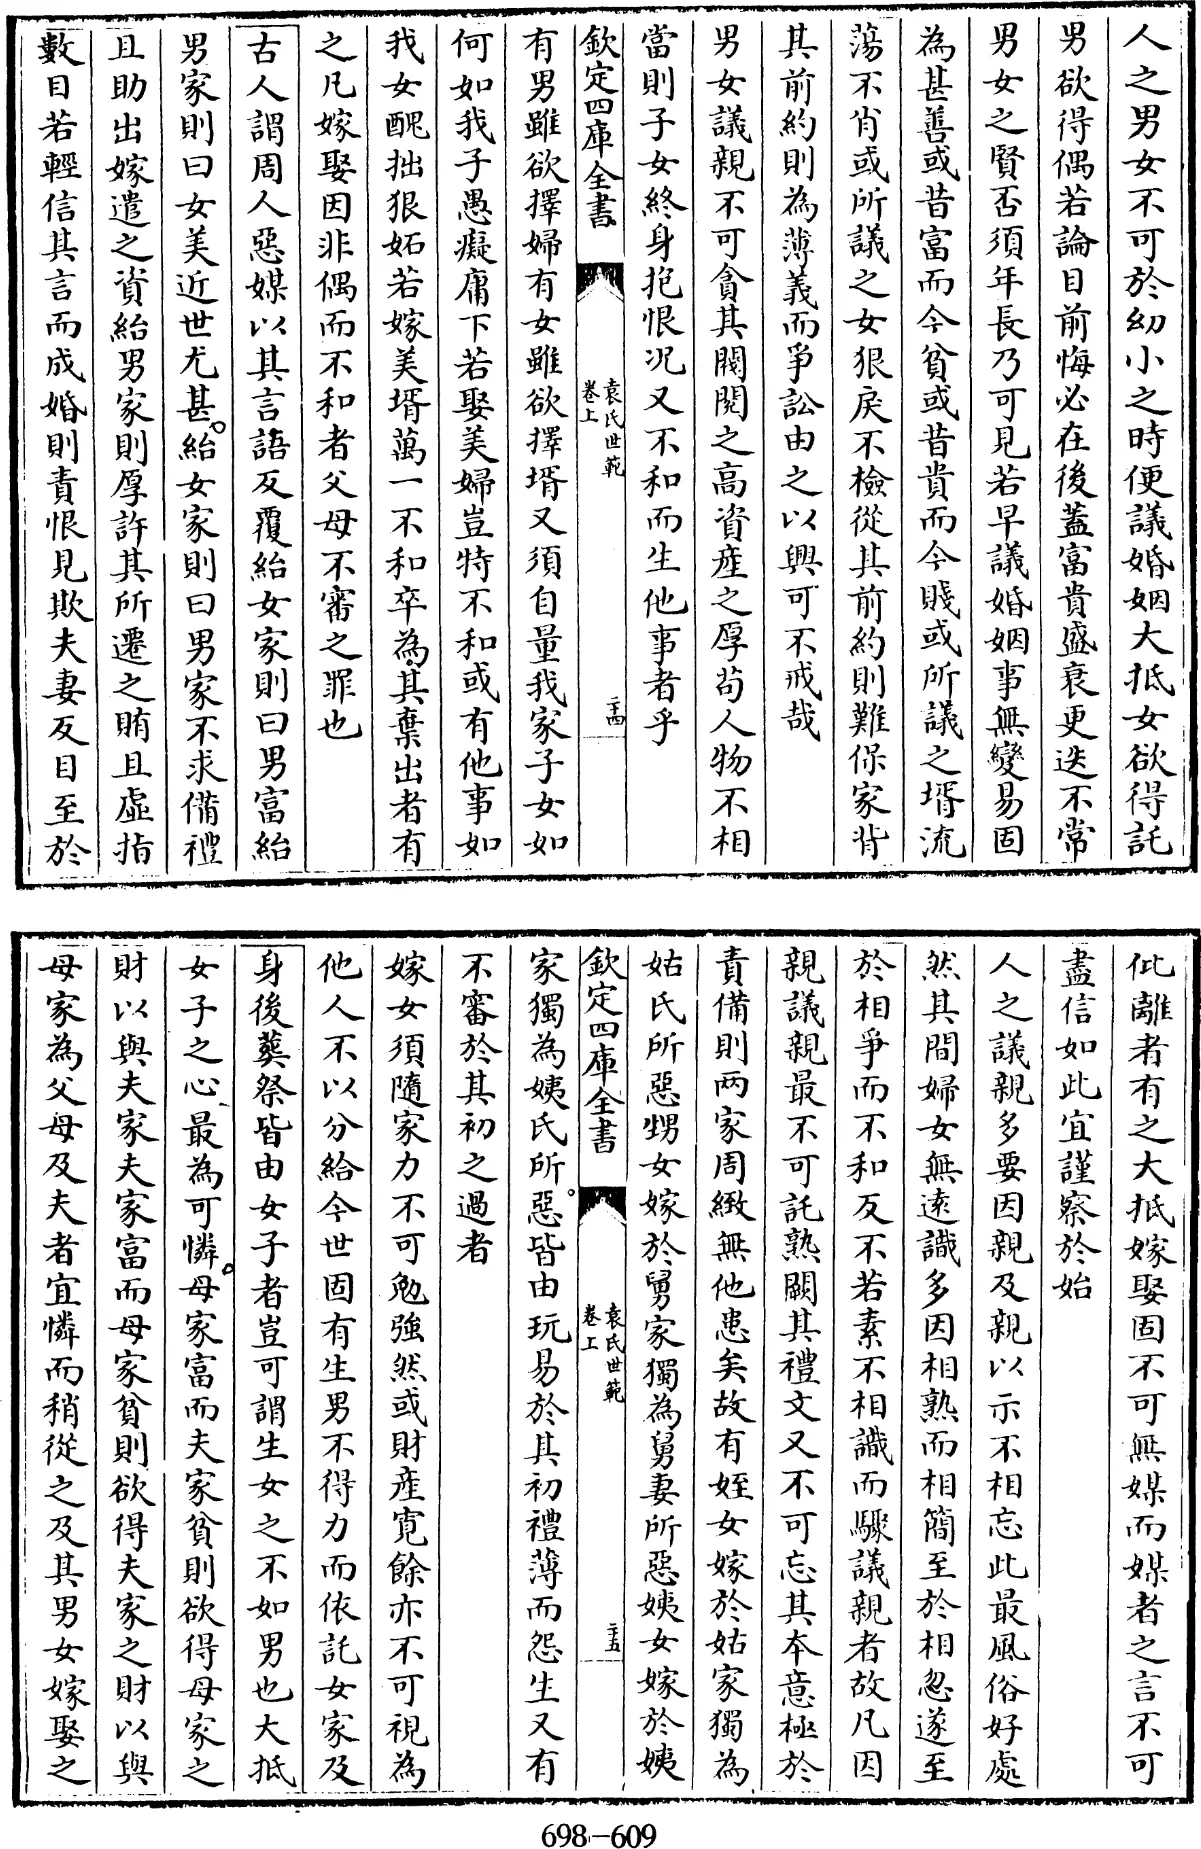 人之男女不可於幼小之時便議婚姻大抵女欲得託
男欲得偶若論目前悔必在後蓋富貴盛衰更迭不常
男女之賢否須年長乃可見若早議婚姻事無變易固
為甚善或昔富而今貧或昔貴而今賤或所議之壻流
蕩不肖或所議之女狠戾不檢從其前約則難保家背
其前約則為薄義而爭訟由之以興可不戒哉
男女議親不可貪其閥閱之高資產之厚苟人物不相
當則子女終身抱恨况又不和而生他事者乎
欽定四庫全書
袁氏世範
卷上
二十四
有男雖欲擇婦有女雖欲擇壻又須自量我家子女如
何如我子愚癡庸下若娶美婦豈特不和或有他事如
我女醜拙狠妬若嫁美壻萬一不和卒為其棄出者有
之凡嫁娶因非偶而不和者父母不審之罪也
古人謂周人惡媒以其言語反覆紿女家則曰男富紿
男家則曰女美近世尤甚紿女家則曰男家不求備禮
且助出嫁遣之資紿男家則厚許其所遷之賄且虛指
數目若輕信其言而成婚則責恨見欺夫妻反目至於
仳離者有之大抵嫁娶固不可無媒而媒者之言不可
盡信如此宜謹察於始
人之議親多要因親及親以示不相忘此最風俗好處
然其間婦女無遠識多因相熟而相簡至於相忽遂至
於相爭而不和反不若素不相識而驟議親者故凡因
親議親最不可託熟闕其禮文又不可忘其本意極於
責備則兩家周緻無他患矣故有姪女嫁於姑家獨為
姑氏所惡甥女嫁於舅家獨為舅妻所惡姨女嫁於姨
欽定四庫全書
袁氏世範
卷上
二十五
家獨為姨氏所惡皆由玩易於其初禮薄而怨生又有
不審於其初之過者
嫁女須隨家力不可勉強然或財產寬餘亦不可視為
他人不以分給今世固有生男不得力而依託女家及
身後葬祭皆由女子者豈可謂生女之不如男也大抵
女子之心最為可憐母家富而夫家貧則欲得母家之
財以與夫家夫家富而母家貧則欲得夫家之財以與
母家為父母及夫者宜憐而稍從之及其男女嫁娶之
698-609